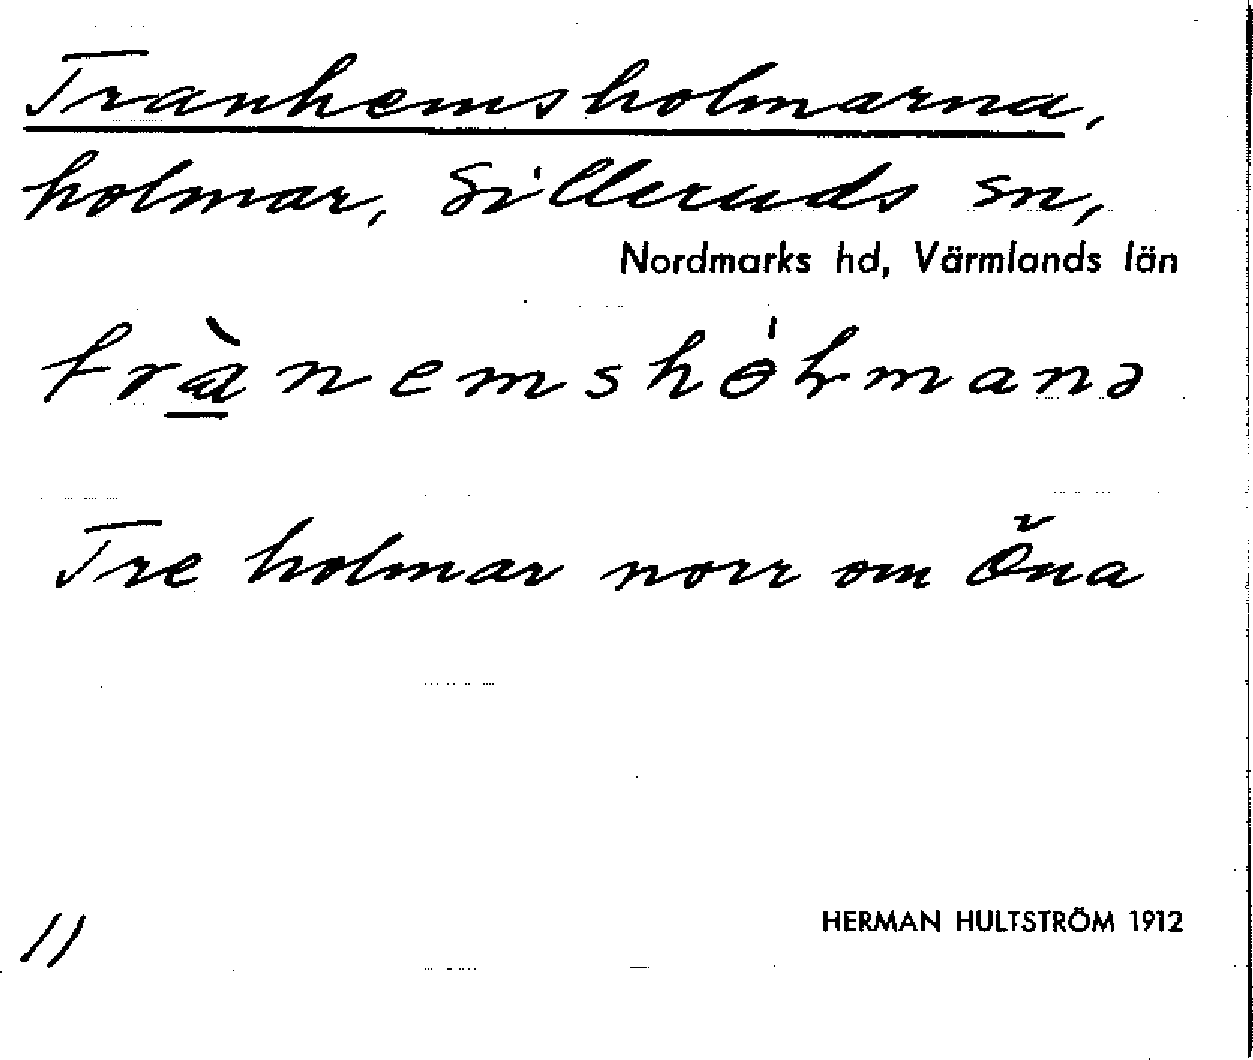 Tranhemsholmarna,
holmar, Silleruds sn,
Nordmarks hd, Värmlands län
trànemshɵ́ɫmanə
Tre holmar norr om Öna
11
HERMAN HULTSTRÖM 1912